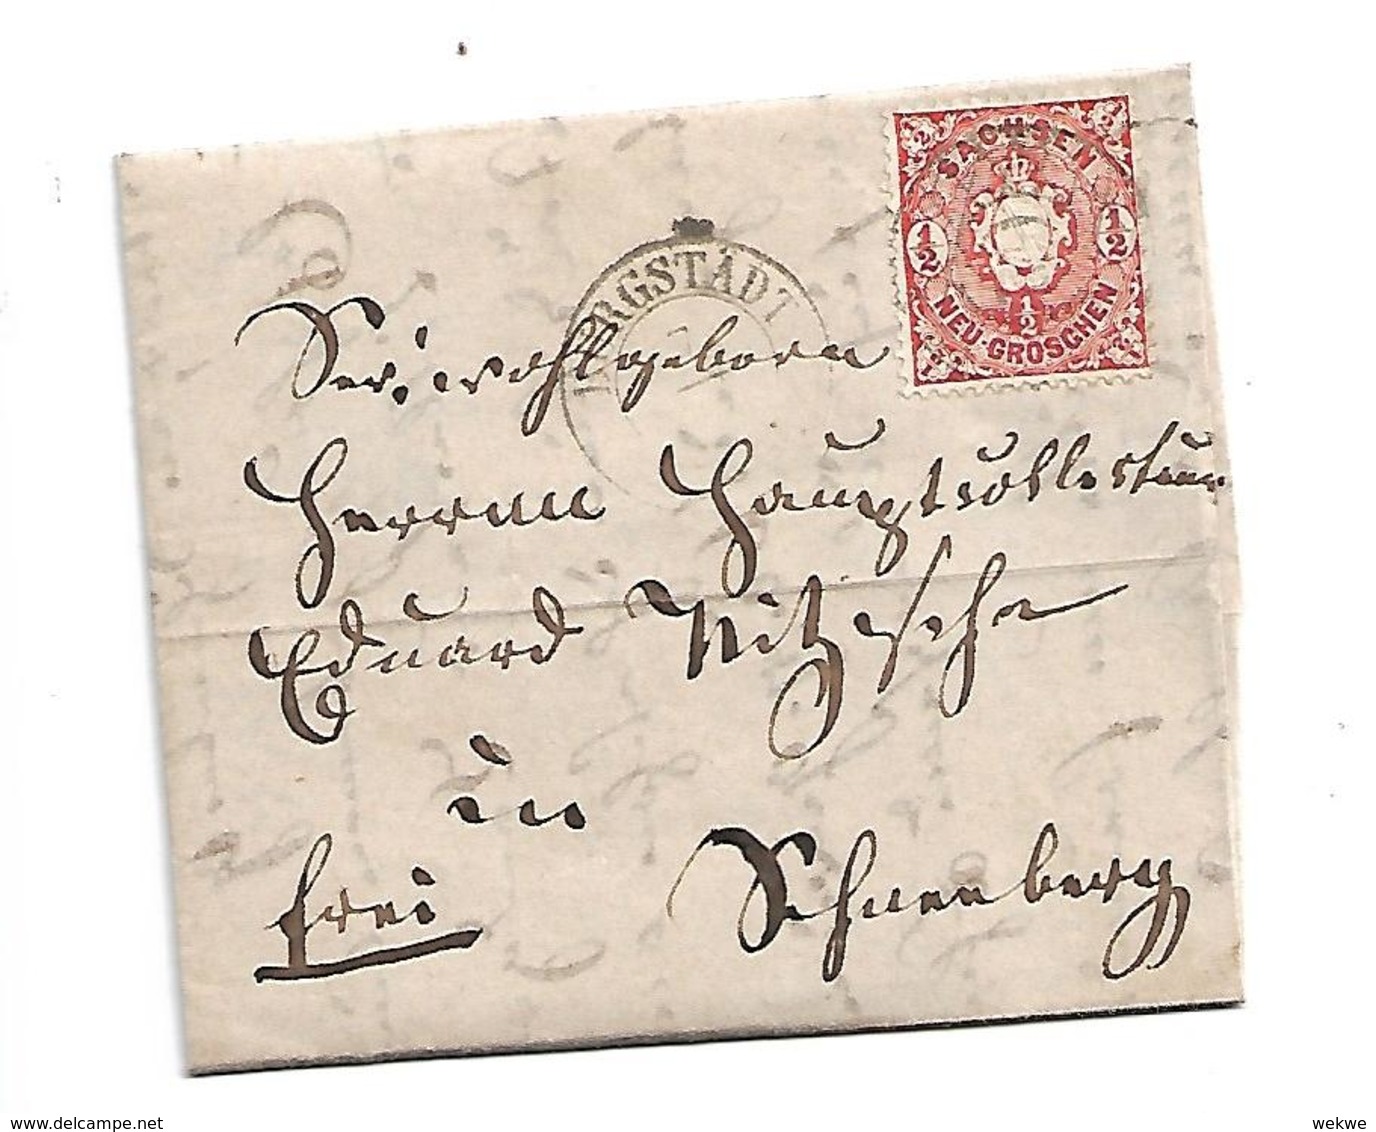 SACHSEN
1/2
1/2
1/2
NEU-GROSCHEN
BURGSTÄDT
Sr. Wohlgeborn
Herrn Hauptcollecteur
Eduard Nitzsche
in
frei Schneeberg
www.delcampe.net
wekwe